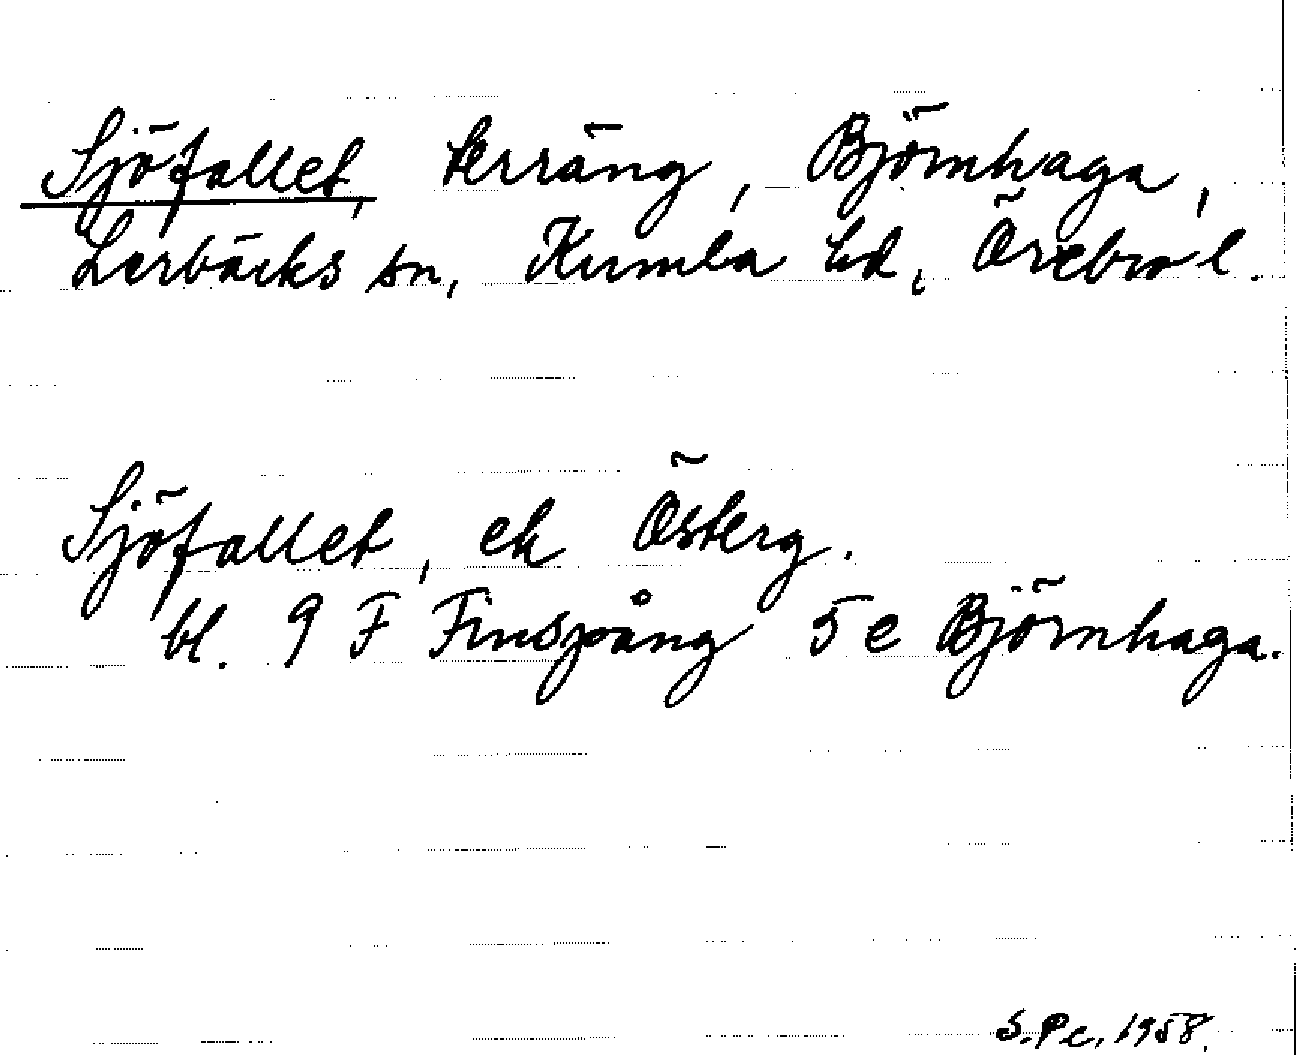 Sjöfallet, terräng, Björnhaga,
Lerbäcks sn, Kumla hd, Örebro l.
Sjöfallet, ek Österg.
bl. 9 F Finspång 5 e Björnhaga.
S.Pc. 1958.